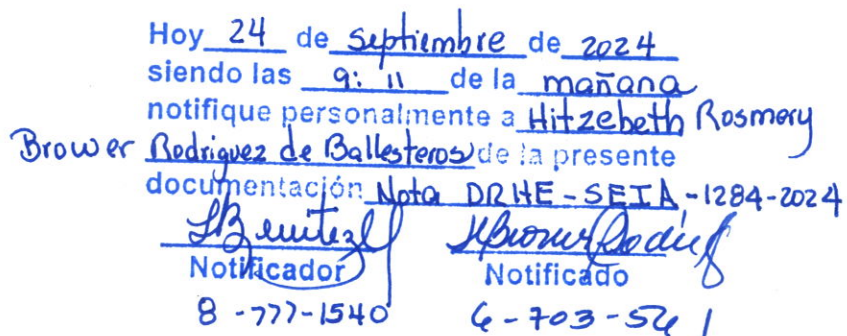 Hoy 24 de Septiembre de 2024
siendo las 9:11 de la mañana
notifique personalmente a Hitzebeth Rosmery
Brower Rodriguez de Ballesteros de la presente
documentación Nota DRHE-SEIA-1284-2024
Notificador Notificado
8-777-1540